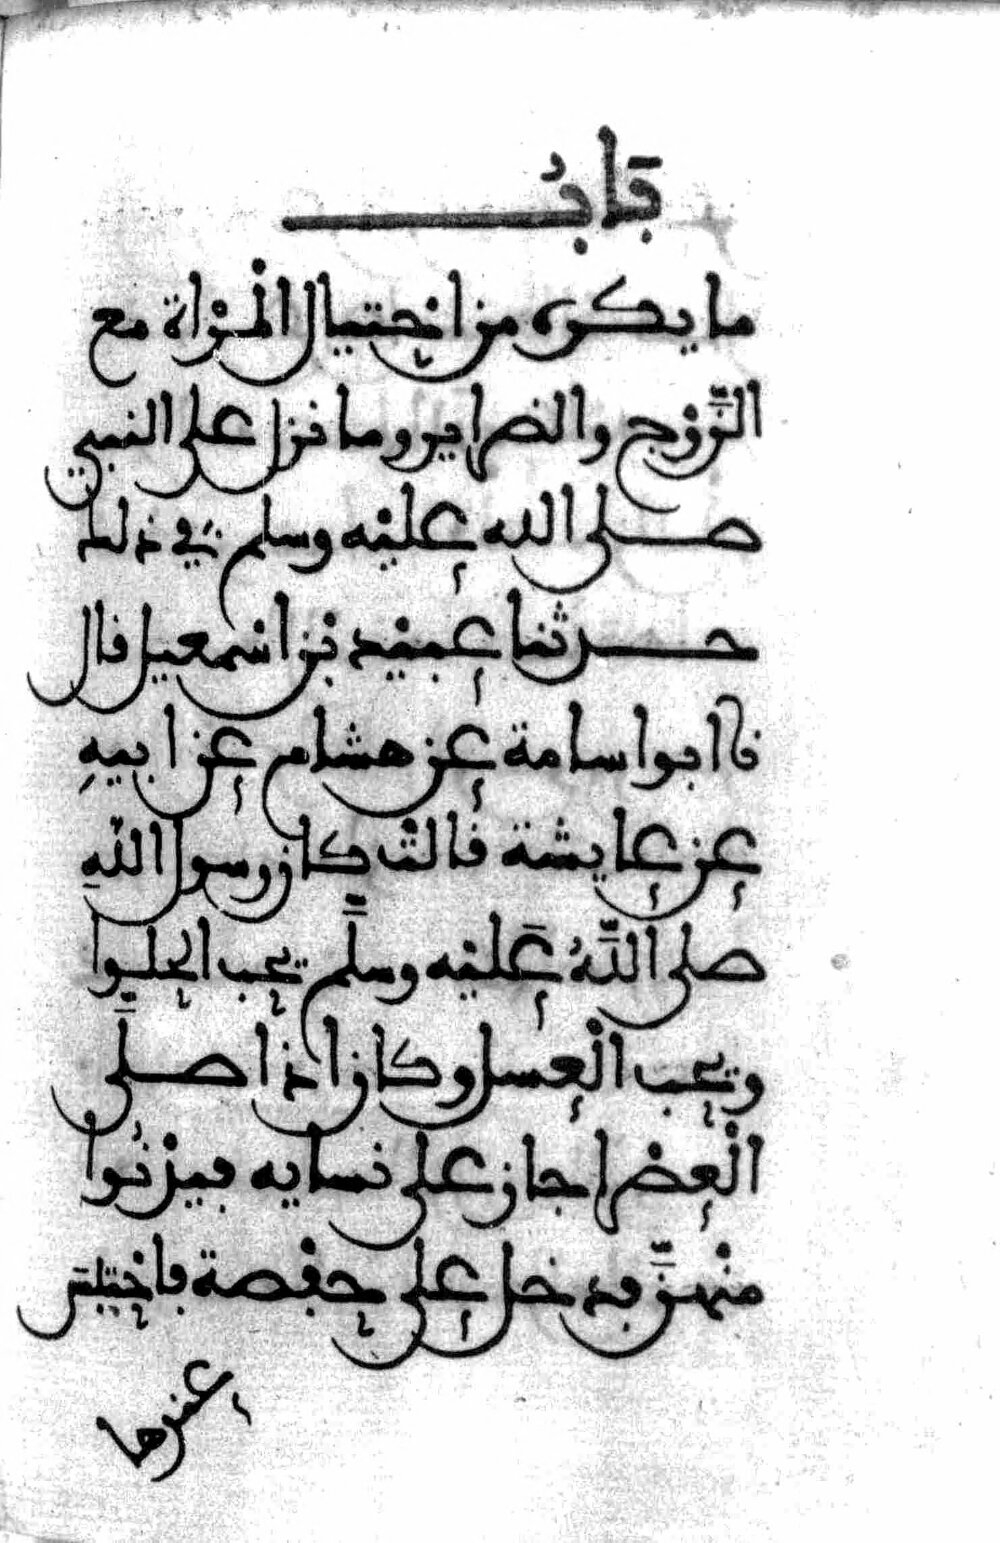 بَابُ
ما يكره من احْتيال الْمرْأة مع
الزَّوْج والضراير وما نزل على النبي
صلى الله عليْه وسلم في ذلك
حدثنا عبيْد بْن اسْمعيل قال
نا ابو اسامة عن هشام عن ابيهِ
عن عايشة قالتْ كان رسول اللهِ
صلى اللَّهُ عَليْه وسلَّم يحب الحلوا
ويحب الْعسل وكان اذا صلَّى
الْعصْر اجاز على نسايه فيدْنُوا
منْهنَّ فدخل على حفْصة فاحْتبس
عندها